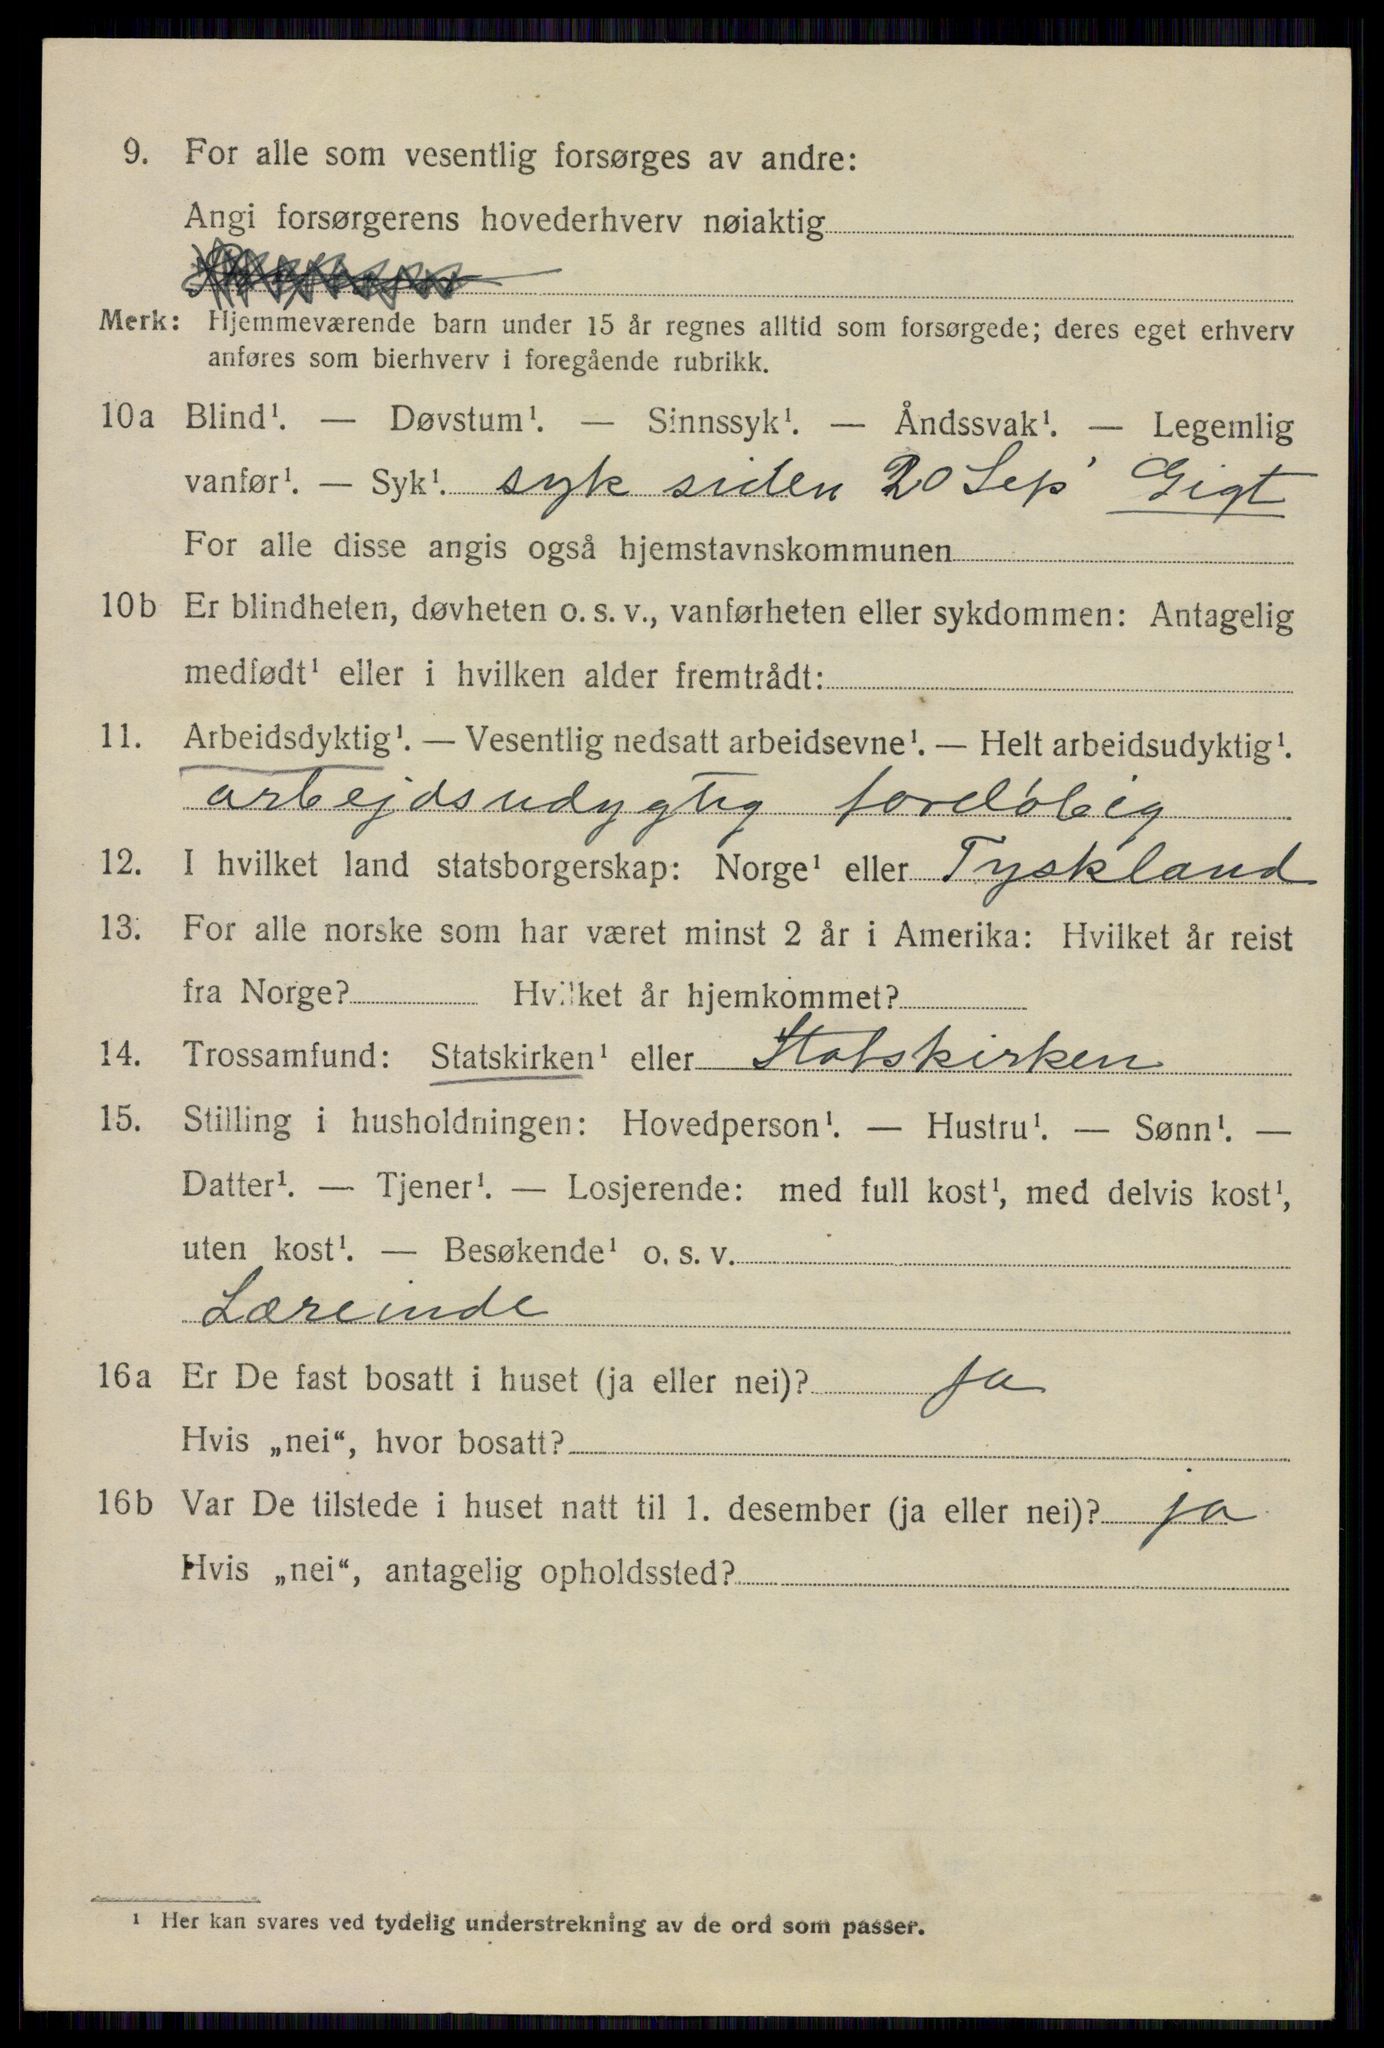 9. For alle som vesentlig forsørges av andre:
Angi forsørgerens hovederhverv nøiaktig
Merk: Hjemmeværende barn under 15 år regnes alltid som forsørgede; deres eget erhverv
anføres som bierhverv i foregående rubrikk.
10a Blind¹. — Døvstum¹. — Sinnssyk¹. — Åndssvak¹. — Legemlig
vanfør¹. — Syk¹. syk siden 20 Sep' Gigt
For alle disse angis også hjemstavnskommunen
10b Er blindheten, døvheten o. s. v., vanførheten eller sykdommen: Antagelig
medfødt¹ eller i hvilken alder fremtrådt:
11. Arbeidsdyktig¹. — Vesentlig nedsatt arbeidsevne¹. — Helt arbeidsudyktig¹.
arbejdsudygtig foreløbig
12. I hvilket land statsborgerskap: Norge¹ eller Tyskland
13. For alle norske som har været minst 2 år i Amerika: Hvilket år reist
fra Norge? Hvilket år hjemkommet?
14. Trossamfund: Statskirken¹ eller Statskirken
15. Stilling i husholdningen: Hovedperson¹. — Hustru¹. — Sønn¹. —
Datter¹. — Tjener¹. — Losjerende: med full kost¹, med delvis kost¹,
uten kost¹. — Besøkende¹ o. s. v.
Læreinde
16a Er De fast bosatt i huset (ja eller nei)? ja
Hvis „nei“, hvor bosatt?
16b Var De tilstede i huset natt til 1. desember (ja eller nei)? ja
Hvis „nei“, antagelig opholdssted?
¹ Her kan svares ved tydelig understrekning av de ord som passer.